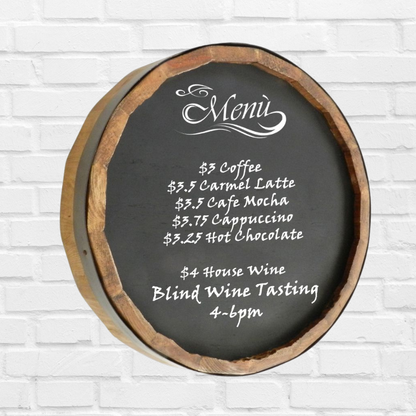 Menù
$3 Coffee
$3.5 Carmel Latte
$3.5 Cafe Mocha
$3.75 Cappuccino
$3.25 Hot Chocolate
$4 House Wine
Blind Wine Tasting
4-6pm